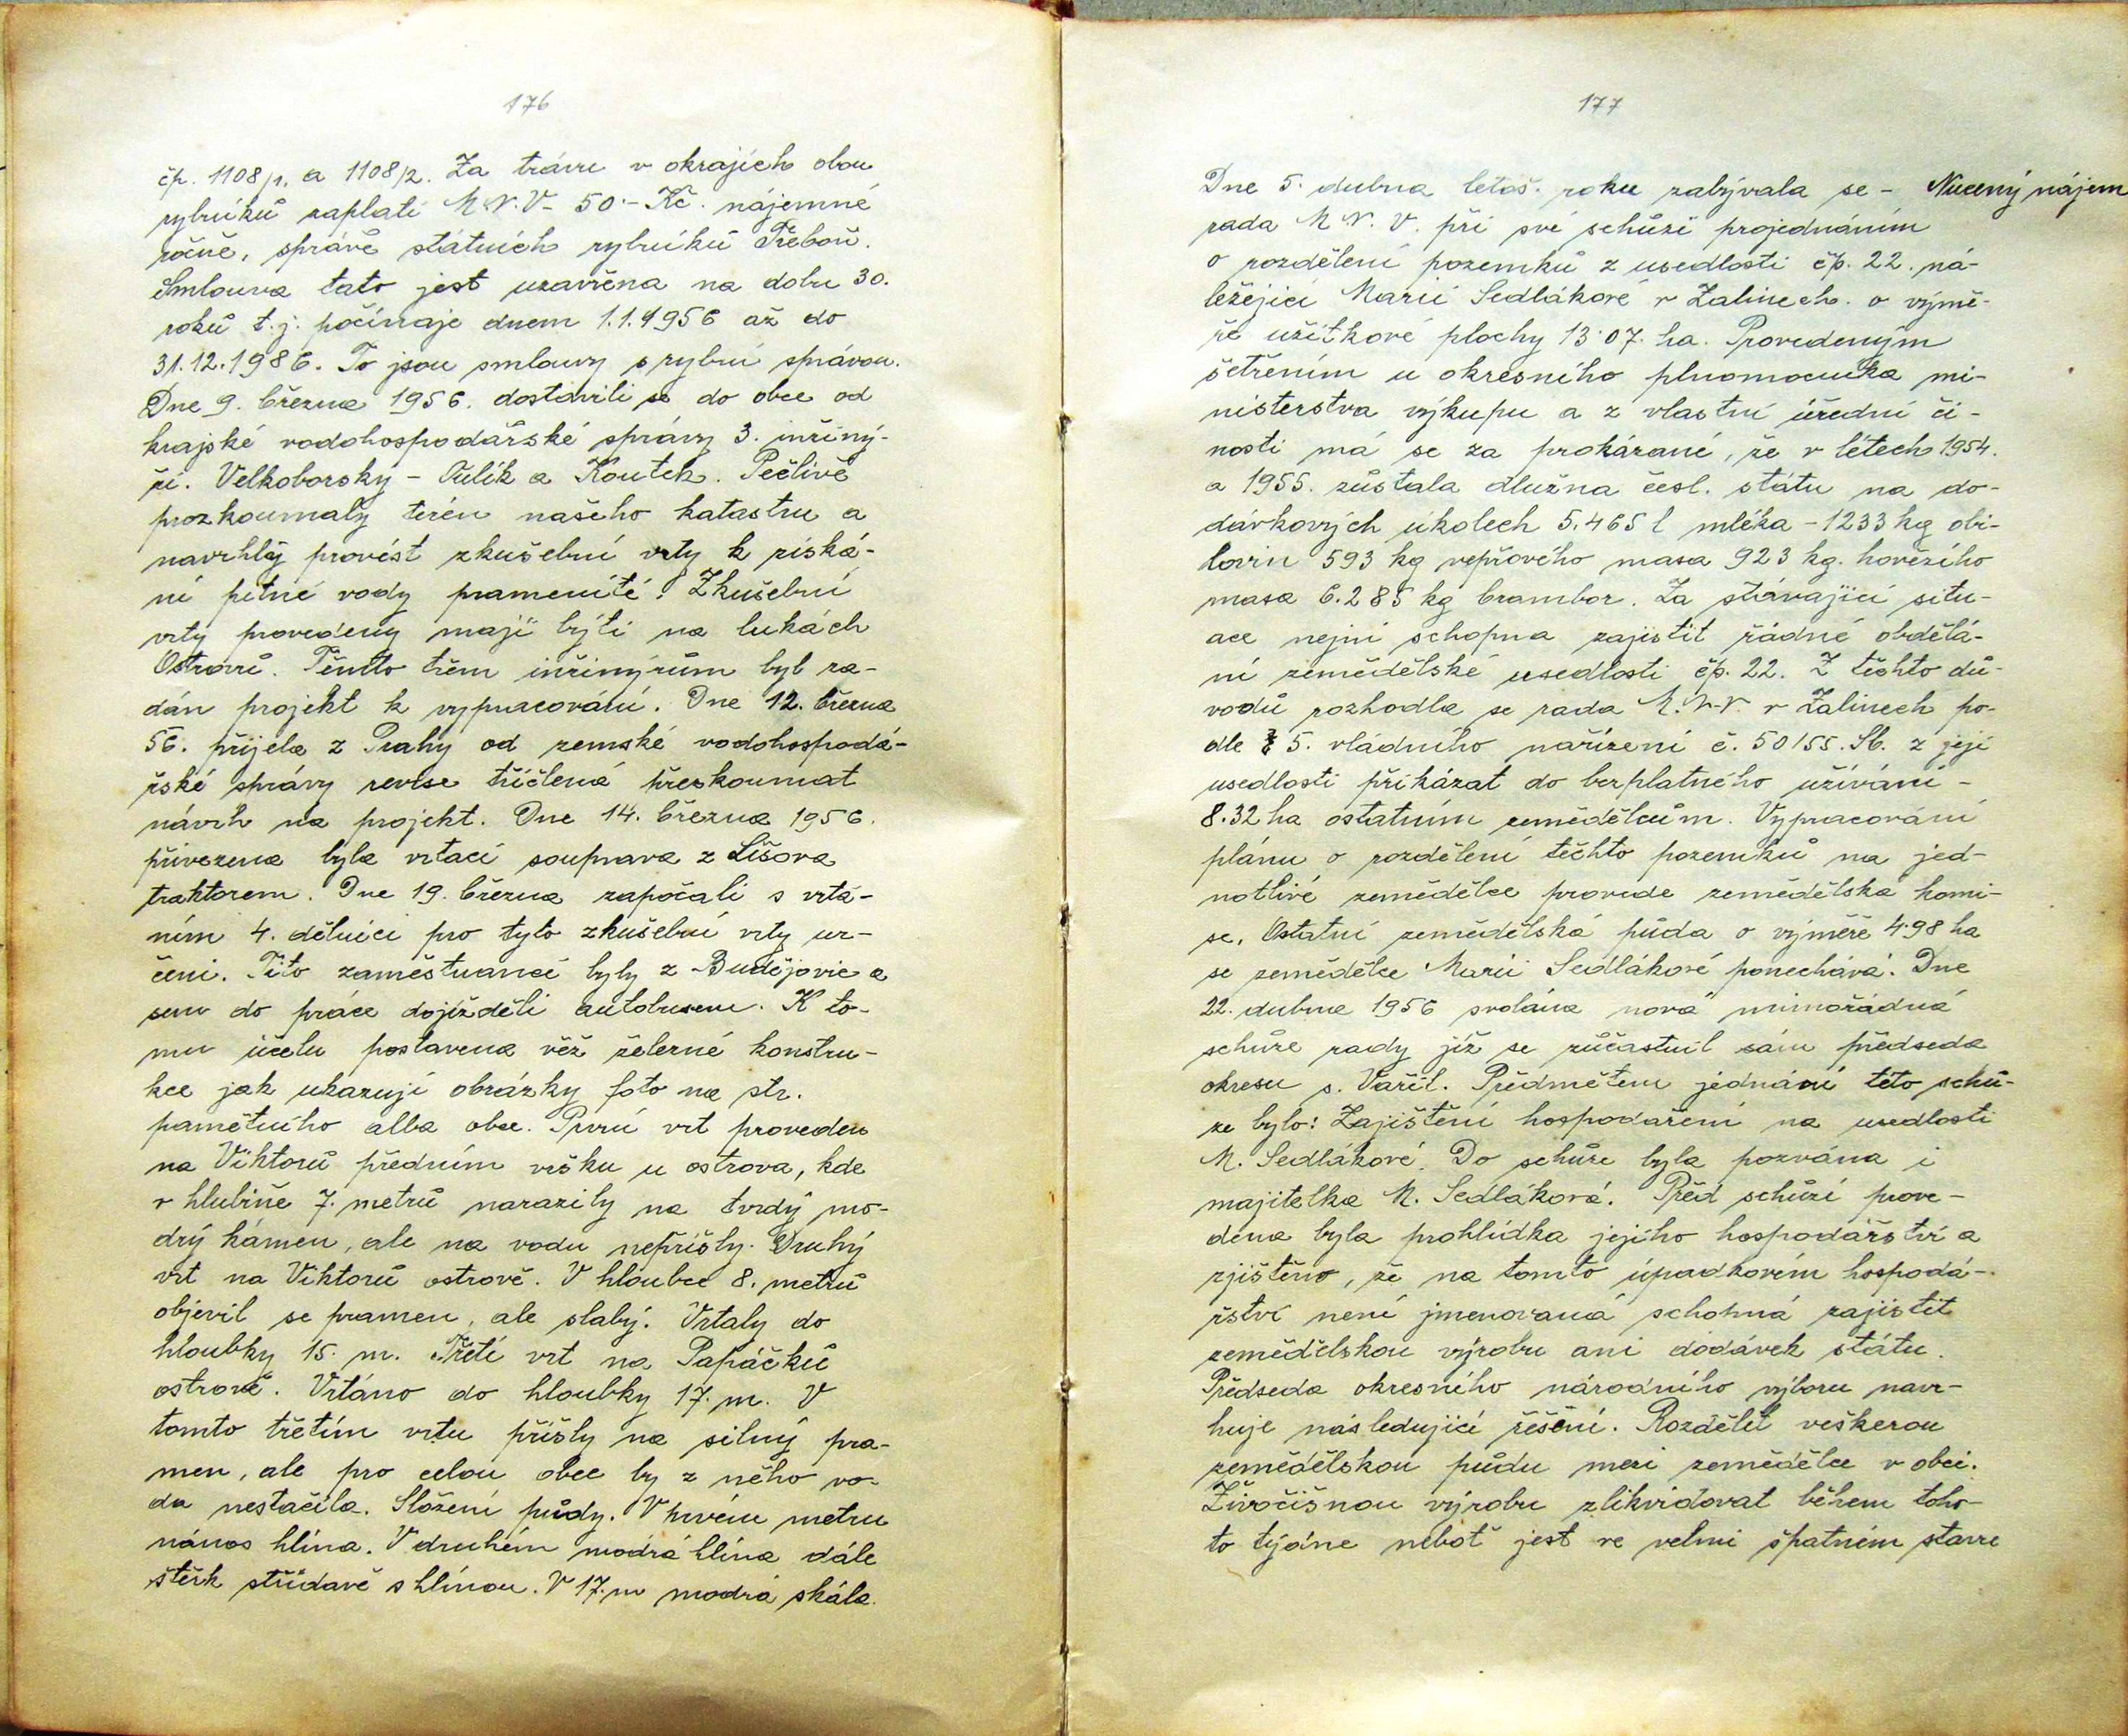 176
čp. 1108/1. a 1108/2. Za trávu v okrajích obou
rybníků zaplatí M.N.V. 50.- Kč. nájemné
ročně, správě státních rybníků Třeboň.
Smlouva tato jest uzavřena na dobu 30.
roků t.j. počínaje dnem 1.1.1956 až do
31.12.1986. To jsou smlouvy s rybní správou.
Dne 9. března 1956. dostavili se do obce od
krajské vodohospodářské správy 3. inžiný-
ři. Velkoborský - Tulík a Koutek. Pečlivě
prozkoumaly terén našeho katastru a
navrhly provést zkušební vrty k získá-
ní pitné vody pramenité. Zkušební
vrty provedeny mají býti na lukách
Ostrově. Těmto třem inžinýrům byl za-
dán projekt k vypracování. Dne 12. března
56. přijela z Prahy od zemské vodohospodá-
řské správy revise tříčlená přeskoumat
návrh na projekt. Dne 14. března 1956.
přivezena byla vrtací souprava z Lišova
traktorem. Dne 19. března započali s vrtá-
ním 4. dělníci pro tyto zkušební vrty ur-
čeni. Tito zaměstnanci byly z Budějovic a
sem do práce dojížděli autobusem. K to-
mu účelu postavena věž železné konstru-
kce jak ukazují obrázky foto na str.
pamětního alba obce. První vrt proveden
na Viktorů předním vršku u ostrova, kde
v hlubině 7. metrů narazily na tvrdý mo-
drý kámen, ale na vodu nepřišly. Druhý
vrt na Viktorů ostrově. V hloubce 8. metrů
objevil se pramen, ale slabý. Vrtaly do
hloubky 15. m. Třetí vrt na Papáčků
ostrově. Vrtáno do hloubky 17. m. V
tomto třetím vrtu přišly na silný pra-
men, ale pro celou obec by z něho vo-
da nestačila. Složení půdy. V prvém metru
nános hlína. V druhém modrá hlína dále
štěrk střídavě s hlínou. V 17. m modrá skála.
177
Dne 5. dubna letoš. roku zabývala se - Nucený nájem
rada M.N.V. při své schůzi projednáním
o rozdělení pozemků z usedlosti čp. 22. ná-
ležející Marii Sedlákové v Zalinech. o výmě-
ře užitkové plochy 13.07. ha. Provedeným
šetřením u okresního plnomocníka mi-
nisterstva výkupu a z vlastní úřední či-
nosti má se za prokázané, že v létech 1954.
a 1955. zůstala dlužna česl. státu na do-
dávkových úkolech 5.465 l mléka - 1233 kg obi-
lovin 593 kg vepřového masa 923 kg. hovězího
masa 6.285 kg brambor. Za stávající situ-
ace nejní schopna zajistit řádné obdělá-
ní zemědělské usedlosti čp. 22. Z těchto dů-
vodů rozhodla se rada M.N.V. v Zalinech po-
dle § 5. vládního nařízení č. 50/55. Sb. z její
usedlosti přikázat do bezplatného užívání -
8.32 ha ostatním zemědělcům. Vypracování
plánu o rozdělení těchto pozemků na jed-
notlivé zemědělce provede zemědělská komi-
se. Ostatní zemědělská půda o výměře 4.98 ha
se zemědělce Marii Sedlákové ponechává. Dne
22. dubna 1956 svolána nová mimořádná
schůze rady jíž se zúčastnil sám předseda
okresu s. Vařil. Předmětem jednání této schů-
ze bylo: Zajištění hospodaření na usedlosti
M. Sedlákové. Do schůze byla pozvána i
majitelka M. Sedláková. Před schůzí prove-
dena byla prohlídka jejího hospodářství a
zjištěno, že na tomto úpadkovém hospodá-
řství není jmenovaná schopná zajistit
zemědělskou výrobu ani dodávek státu.
Předseda okresního národního výboru navr-
huje následující řešení. Rozdělit veškerou
zemědělskou půdu mezi zemědělce v obci.
Živočišnou výrobu zlikvidovat během toho-
to týdne neboť jest ve velmi špatném stavu